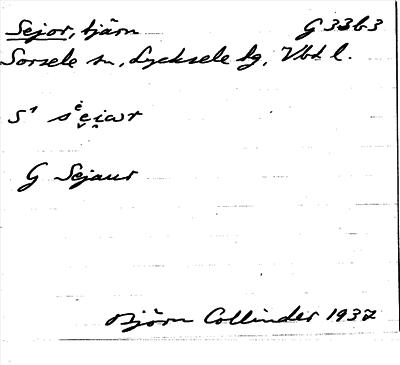 Sejor, tjärn G 33 b 3
Sorsele sn, Lycksele lg, Vbd l.
G Sejaur
Björn Collinder 1932